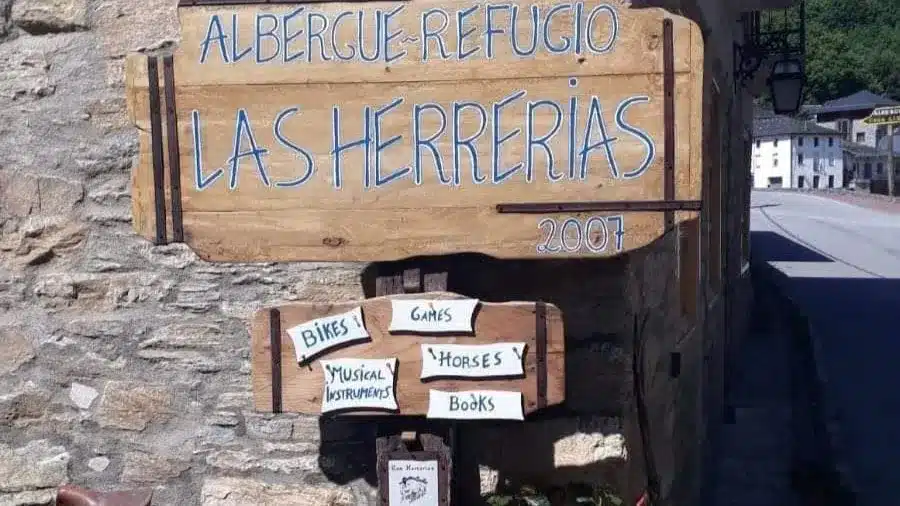 ALBERGUE~REFUGIO
LAS HERRERiAS
2007
BiKES
GAMES
MUSiCAL
iNSTRUMENTS
HORSES
BOOKS